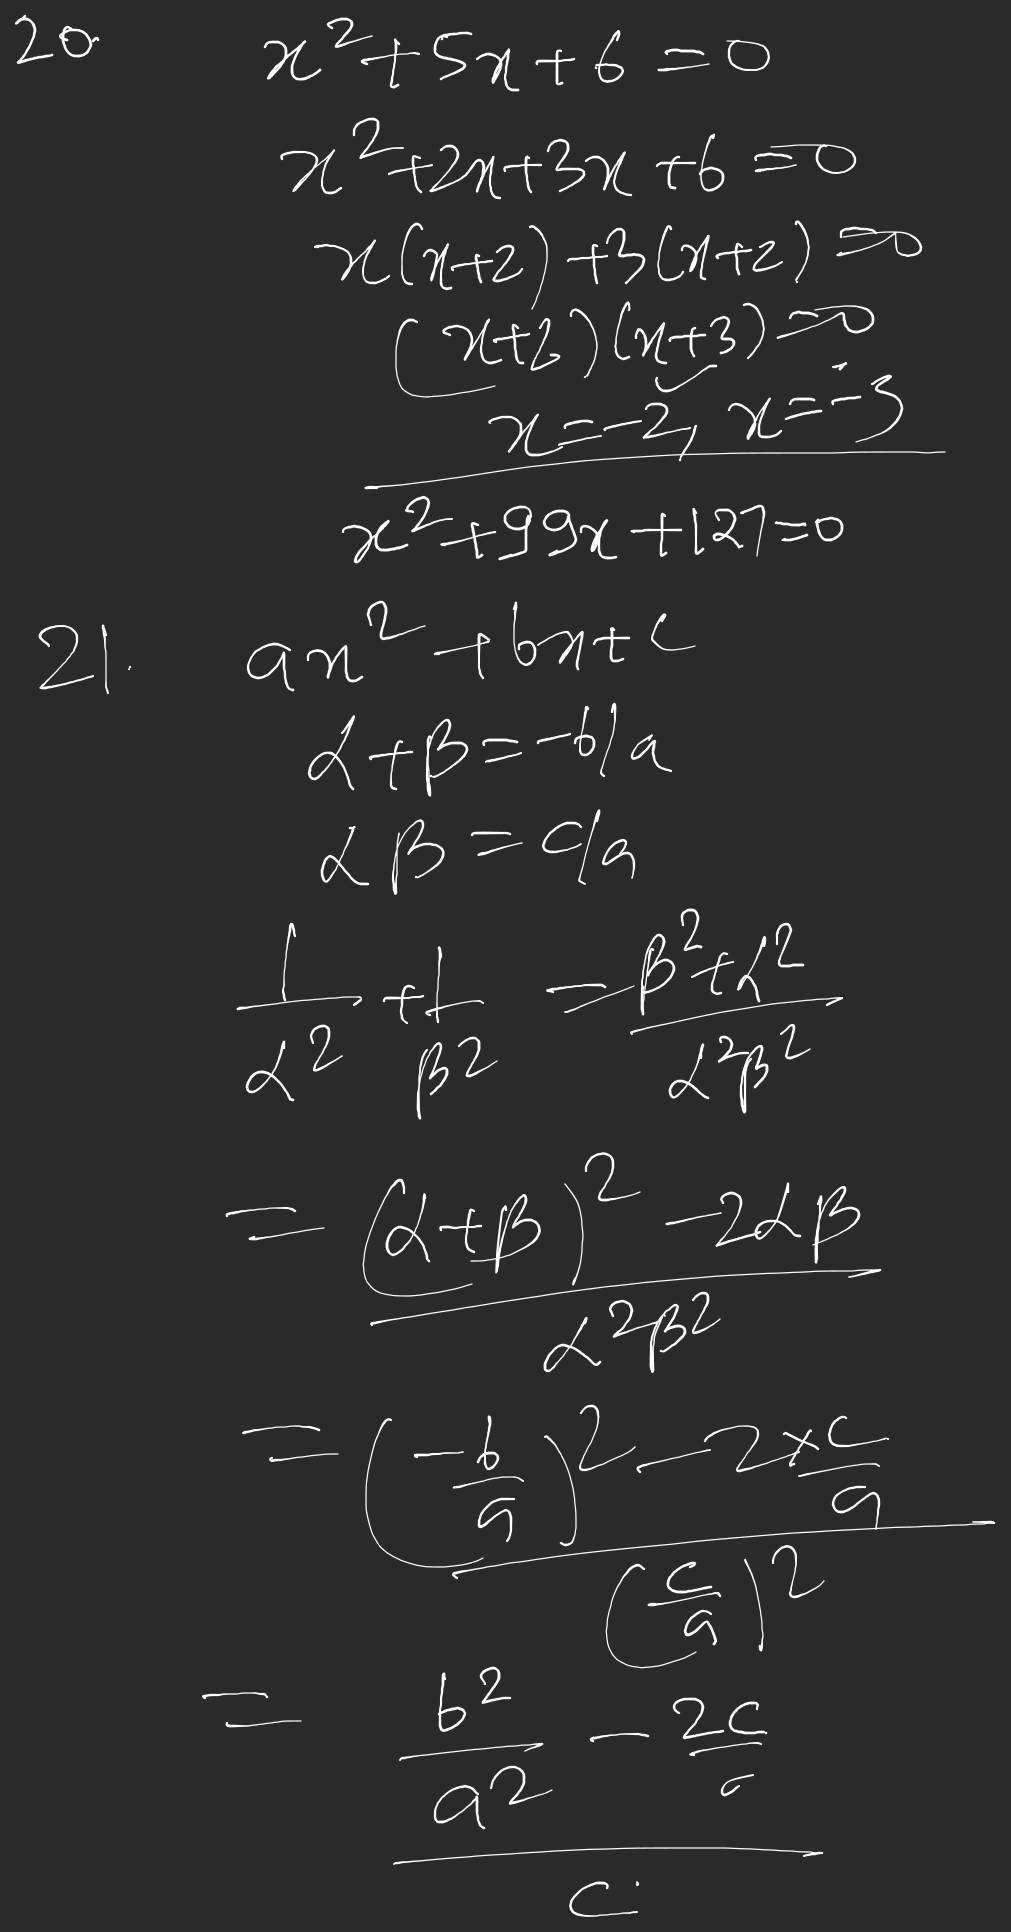 20. x² + 5x + 6 = 0
x² + 2x + 3x + 6 = 0
x(x+2) + 3(x+2) = 0
(x+2)(x+3) = 0
x = -2, x = -3
x² + 99x + 127 = 0
21. ax² + bx + c
α + β = -b/a
αβ = c/a
1/α² + 1/β² = (β² + α²)/(α²β²)
= ((α+β)² - 2αβ)/(α²β²)
= ((-b/a)² - 2×c/a)/((c/a)²)
= (b²/a² - 2c/a)/c